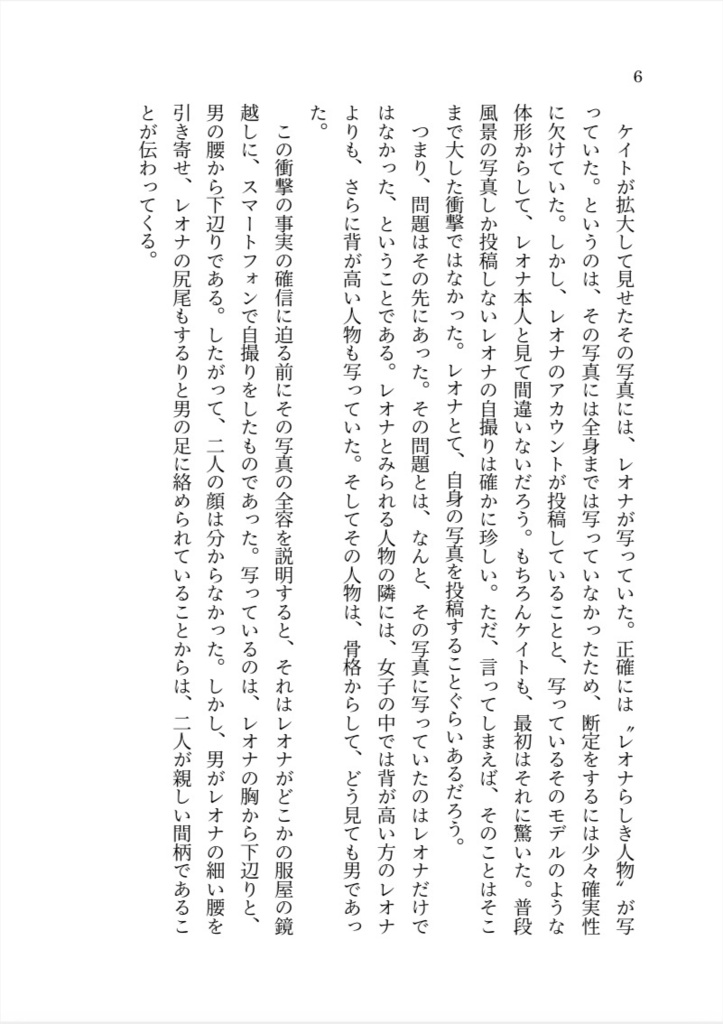 6
　ケイトが拡大して見せたその写真には、レオナが写っていた。正確には〝レオナらしき人物〟が写
っていた。というのは、その写真には全身までは写っていなかったため、断定をするには少々確実性
に欠けていた。しかし、レオナのアカウントが投稿していることと、写っているそのモデルのような
体形からして、レオナ本人と見て間違いないだろう。もちろんケイトも、最初はそれに驚いた。普段
風景の写真しか投稿しないレオナの自撮りは確かに珍しい。ただ、言ってしまえば、そのことはそこ
まで大した衝撃ではなかった。レオナとて、自身の写真を投稿することぐらいあるだろう。
　つまり、問題はその先にあった。その問題とは、なんと、その写真に写っていたのはレオナだけで
はなかった、ということである。レオナとみられる人物の隣には、女子の中では背が高い方のレオナ
よりも、さらに背が高い人物も写っていた。そしてその人物は、骨格からして、どう見ても男であっ
た。
　この衝撃の事実の確信に迫る前にその写真の全容を説明すると、それはレオナがどこかの服屋の鏡
越しに、スマートフォンで自撮りをしたものであった。写っているのは、レオナの胸から下辺りと、
男の腰から下辺りである。したがって、二人の顔は分からなかった。しかし、男がレオナの細い腰を
引き寄せ、レオナの尻尾もするりと男の足に絡められていることからは、二人が親しい間柄であるこ
とが伝わってくる。